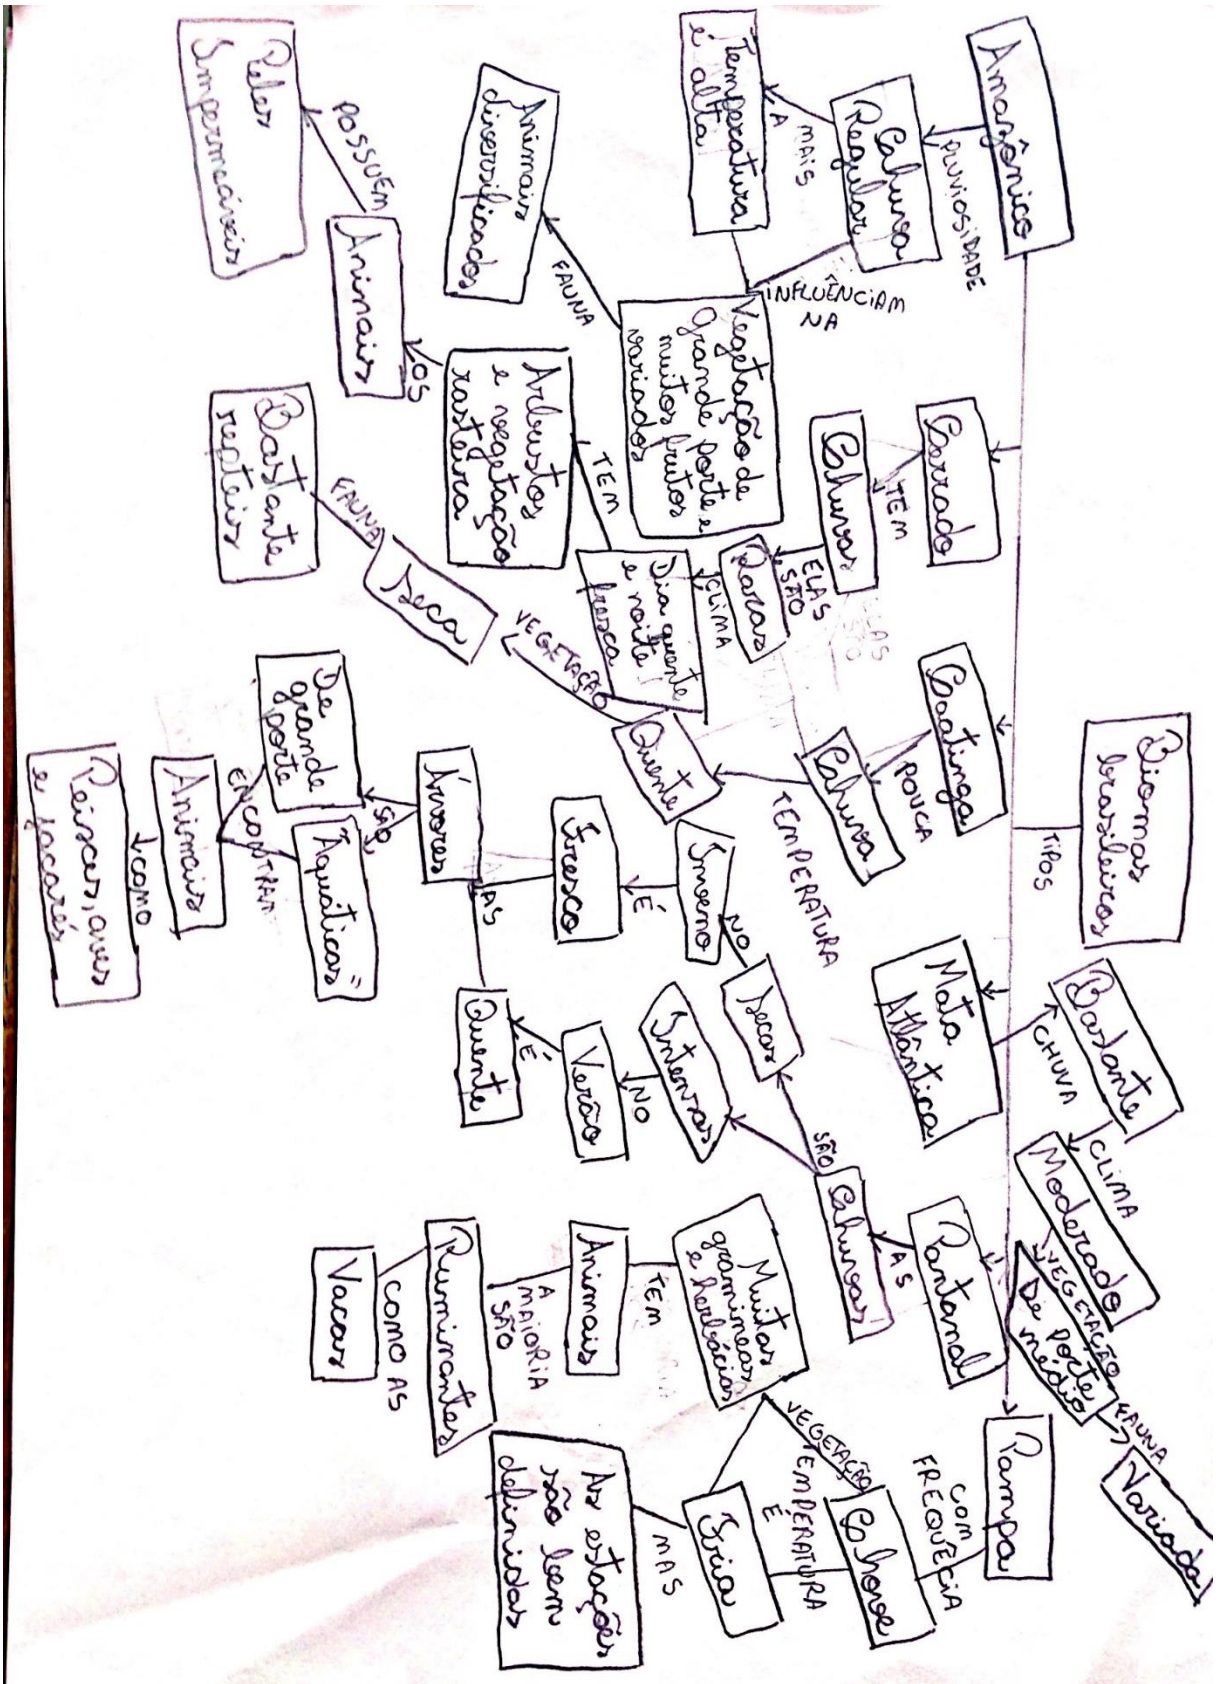 Biomas
brasileiros
TIPOS
Amazônico
PLUVIOSIDADE
Chuva
Regular
MAIS
A
Temperatura
é alta
INFLUÊNCIAM
NA
Vegetação de
grande porte e
muitos frutos
variados
FAUNA
Animais
diversificados
Cerrado
TEM
Chuvas
ELAS
SÃO
Raras
CLIMA
Dia quente
e noite
fresca
TEM
Arbustos
e vegetação
rasteira
OS
Animais
POSSUEM
Peles
Impermeáveis
Caatinga
POUCA
Chuva
TEMPERATURA
Quente
VEGETAÇÃO
Seca
FAUNA
Bastante
repteis
Mata
Atlântica
CHUVA
Bastante
CLIMA
Moderado
VEGETAÇÃO
De porte
médio
FAUNA
Variada
Pantanal
AS
Chuvas
SÃO
Secas
NO
Inverno
É
Fresco
Intensas
NO
Verão
É
Quente
AS
Árvores
SÃO
De
grande
porte
"Aquáticas"
ENCONTRAM
Animais
COMO
Peixes, aves
e jacarés
Pampa
COM
FREQUÊCIA
Chove
TEMPERATURA
É
Fria
MAS
As estações
são bem
definidas
VEGETAÇÃO
Muitas
gramineas
e herbácias
TEM
Animais
A
MAIORIA
SÃO
Ruminantes
COMO AS
Vacas